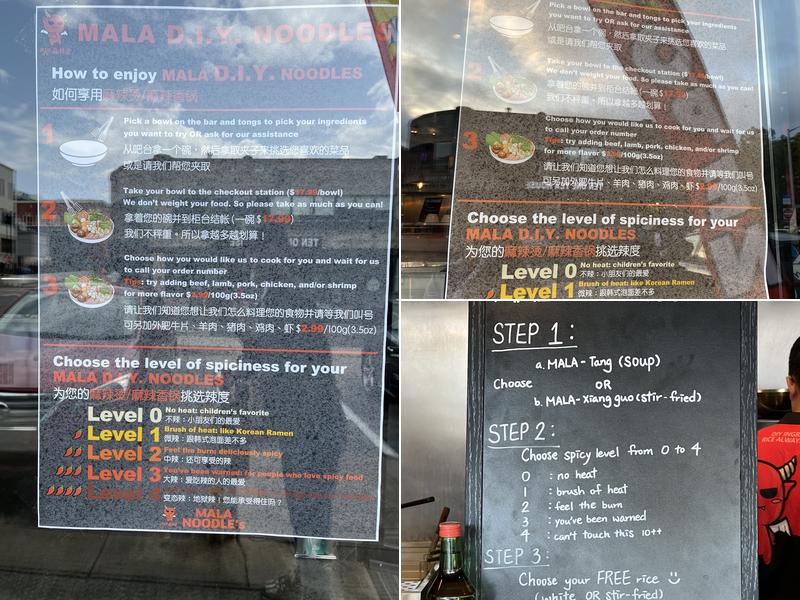 MALA D.I.Y. NOODLES
How to enjoy MALA D.I.Y. NOODLES
如何享用麻辣烫/麻辣香锅
1
Pick a bowl on the bar and tongs to pick your ingredients
you want to try OR ask for our assistance
从吧台拿一个碗，然后拿取夹子来挑选您喜欢的菜品
或是请我们帮您夹取
2
Take your bowl to the checkout station ($17.99/bowl)
We don't weight your food. So please take as much as you can!
拿着您的碗并到柜台结帐 (一碗 $17.99)
我们不秤重。所以拿越多越划算！
3
Choose how you would like us to cook for you and wait for us
to call your order number
Tips: try adding beef, lamb, pork, chicken, and/or shrimp
for more flavor $2.99/100g(3.5oz)
请让我们知道您想让我们怎么料理您的食物并请等我们叫号
可另加外肥牛片、羊肉、猪肉、鸡肉、虾 $2.99/100g(3.5oz)
Choose the level of spiciness for your
MALA D.I.Y. NOODLES
为您的麻辣烫/麻辣香锅挑选辣度
Level 0 No heat: children's favorite
不辣：小朋友们的最爱
Level 1 Brush of heat: like Korean Ramen
微辣：跟韩式泡面差不多
Level 2 Feel the burn: deliciously spicy
中辣：还可享受的辣
Level 3 You've been warned: for people who love spicy food
大辣：爱吃辣的人的最爱
Level 4
变态辣：地狱辣！您能承受得住吗？
MALA
NOODLE's
Pick a bowl on the bar and tongs to pick your ingredients
you want to try OR ask for our assistance
从吧台拿一个碗，然后拿取夹子来挑选您喜欢的菜品
或是请我们帮您夹取
2
Take your bowl to the checkout station ($17.99/bowl)
We don't weight your food. So please take as much as you can!
拿着您的碗并到柜台结帐 (一碗 $17.99)
我们不秤重。所以拿越多越划算！
3
Choose how you would like us to cook for you and wait for us
to call your order number
Tips: try adding beef, lamb, pork, chicken, and/or shrimp
for more flavor $2.99/100g(3.5oz)
请让我们知道您想让我们怎么料理您的食物并请等我们叫号
可另加外肥牛片、羊肉、猪肉、鸡肉、虾 $2.99/100g(3.5oz)
Choose the level of spiciness for your
MALA D.I.Y. NOODLES
为您的麻辣烫/麻辣香锅挑选辣度
Level 0 No heat: children's favorite
不辣：小朋友们的最爱
Level 1 Brush of heat: like Korean Ramen
微辣：跟韩式泡面差不多
STEP 1:
a. MALA-Tang (SOUP)
Choose OR
b. MALA-Xiang guo (stir-fried)
STEP 2:
Choose spicy level from 0 to 4
0 : no heat
1 : brush of heat
2 : feel the burn
3 : you've been warned
4 : can't touch this 10++
STEP 3:
Choose your FREE rice
(white OR stir-fried)
DIY INGR
RICE ALWAY